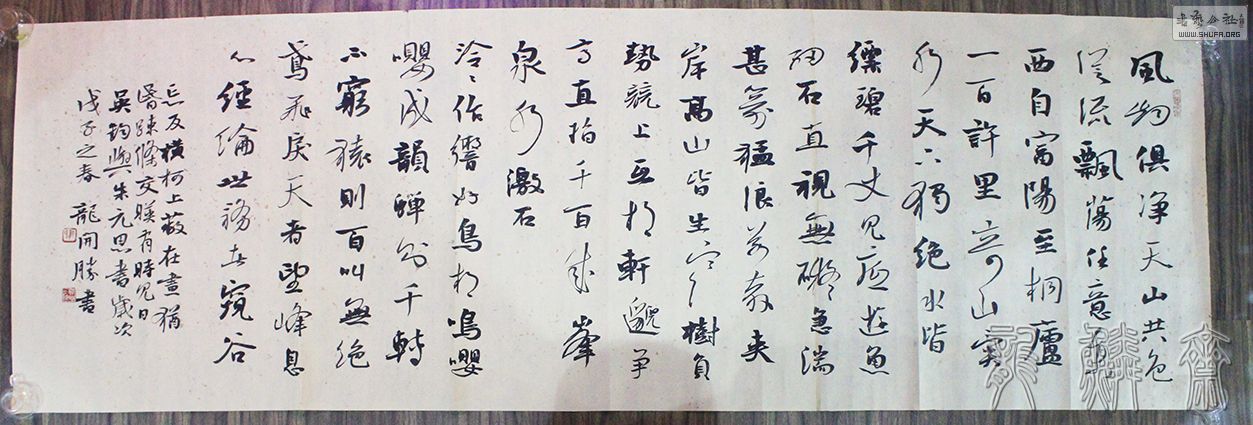 風物俱净天山共色
從流飄蕩任意東
西自富陽至桐廬
一百許里奇山異
水天下獨绝水皆
縹碧千丈見底游魚
細石直視無礙急湍
甚箭猛浪若奔夹
岸高山皆生寒樹負
勢競上互相軒邈爭
高直指千百成峯
泉水激石
泠泠作響好鳥相鳴嚶
嚶成韻蟬則千轉
不窮猿則百叫無绝
鳶飛戾天者望峰息
心經綸世務者窺谷
忘反橫柯上蔽在晝猶
昏疎條交映有時見日
吴均與朱元思書歲次
戊子之春 龍開勝書
書藝公社
www.SHUFA.ORG